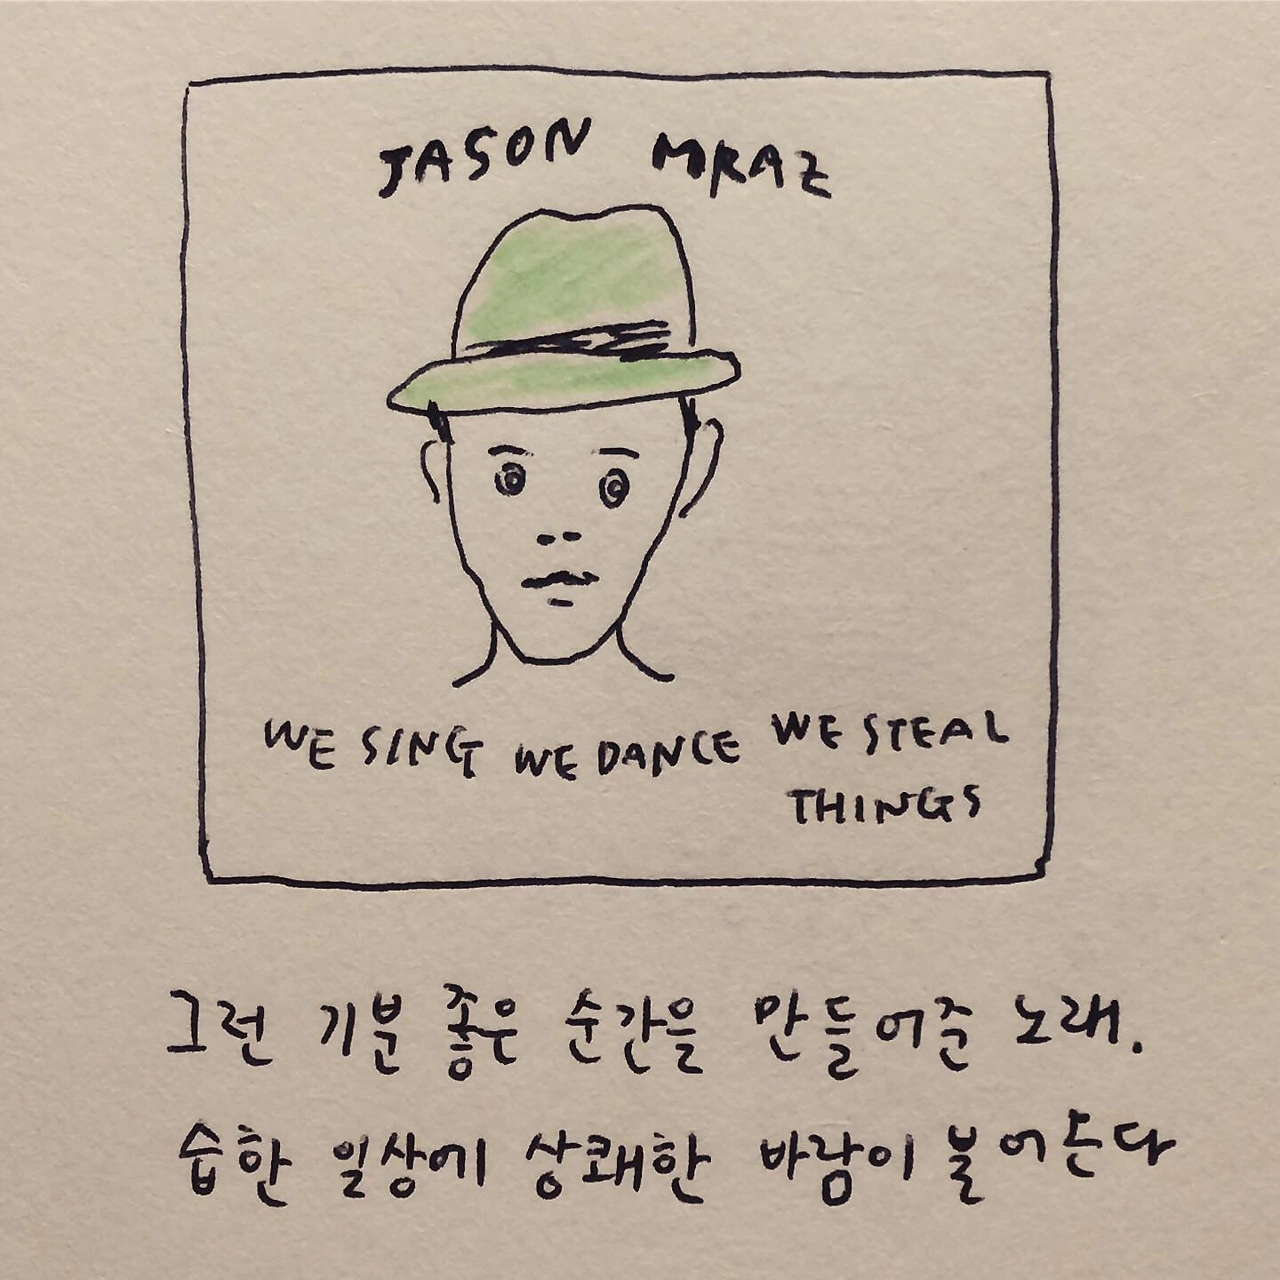 JASON MRAZ
WE SING WE DANCE WE STEAL
THINGS
그런 기분 좋은 순간을 만들어준 노래.
습한 일상에 상쾌한 바람이 불어든다